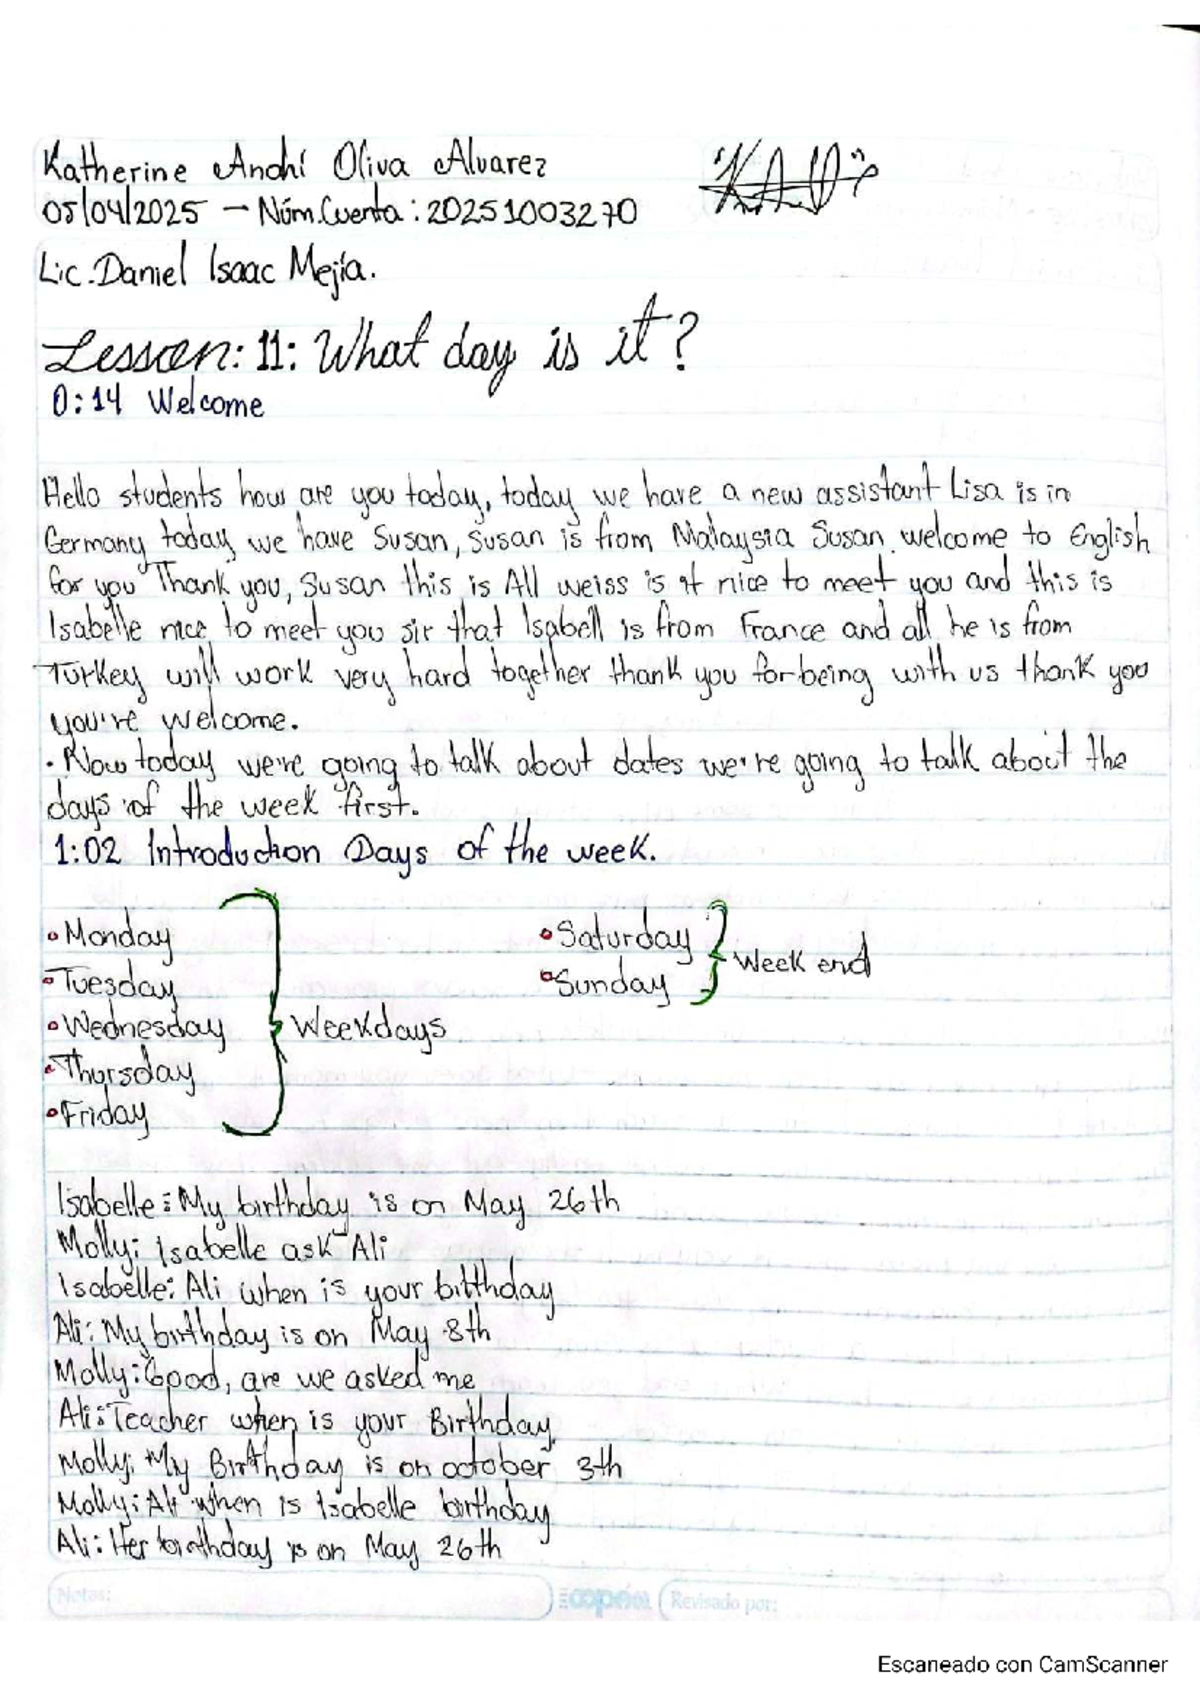 Katherine Andhí Oliva Alvarez
05/04/2025 – Núm.Cuenta: 20251003270
Lic. Daniel Isaac Mejía.
Lesson: 11: What day is it?
0:14 Welcome
Hello students how are you today, today we have a new assistant Lisa is in
Germany today we have Susan, Susan is from Malaysia Susan welcome to English
for you Thank you, Susan this is All weiss is it nice to meet you and this is
Isabelle nice to meet you sir that Isabell is from France and all he is from
Turkey will work very hard together thank you for being with us thank you
you're welcome.
• Now today we're going to talk about dates we're going to talk about the
days of the week first.
1:02 Introduction Days of the week.
• Monday
• Tuesday
• Wednesday
• Thursday
• Friday
Weekdays
• Saturday
• Sunday
Week end
Isabelle: My birthday is on May 26th
Molly: Isabelle ask Ali
Isabelle: Ali when is your bitthday
Ali: My birthday is on May 8th
Molly: Good, are we asked me
Ali: Teacher when is your Birthday
Molly: My Birthday is on october 3th
Molly: Ali when is Isabelle birthday
Ali: Her birthday is on May 26th
Notas:
copán
Revisado por:
Escaneado con CamScanner